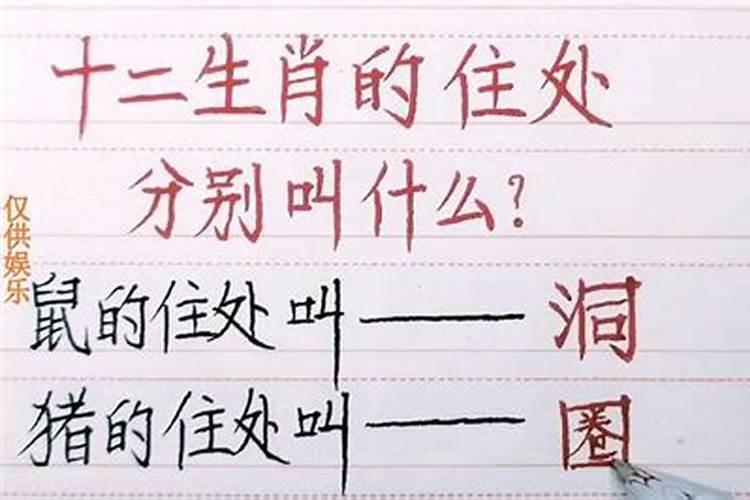 十二生肖的住处
分别叫什么?
仅供娱乐
鼠的住处叫——洞
猪的住处叫——圈